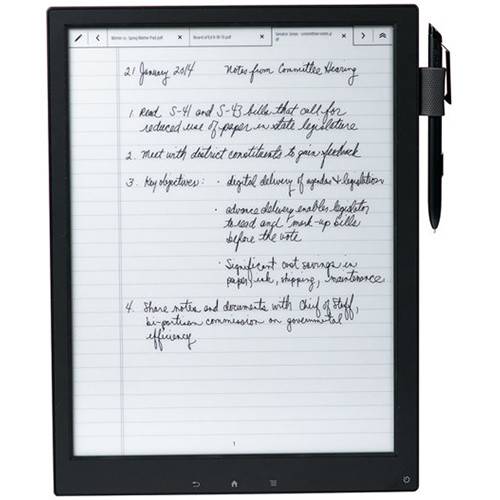 Winter vs. Spring Matter Pad.pdf
Board of Ed 9-30-13.pdf
Senator Jones - committee notes.pdf
21 January 2014 Notes from Committee Hearing
1. Read S-41 and S-43 bills that call for
reduced use of paper in state legislature
2. Meet with district constituents to gain feedback
3. Key objectives: · digital delivery of agendas & legislation
· advance delivery enables legislator
to read and mark-up bills
before the vote
· Significant cost savings in
paper, ink, shipping, maintenance
4. Share notes and documents with Chief of Staff,
bi-partisan commission on governmental
efficiency
1